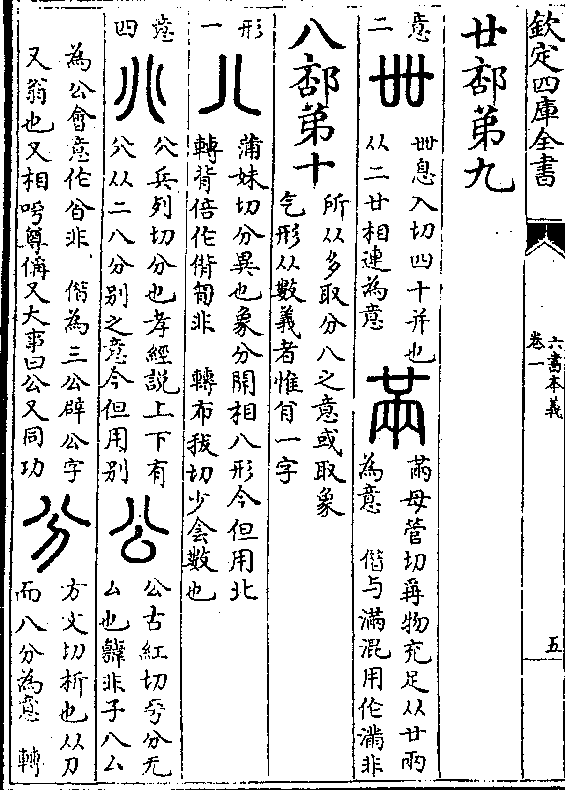 欽定四庫全書
六書本義
卷一
五
廿部第九
意二
卌
卌息入切四十并也
从二廿相連為意
㒼
㒼母管切𤔲物充足从廿㒳
為意 借与满混用作滿非
八部第十
所从多取分八之意或取象
气形从數義者惟㒷一字
形一
八
蒲妹切分異也象分開相八形今但用北
轉背倍作偝㔨非 轉布拔切少会數也
意四
㕣兵列切分也孝經說上下有
㕣从二八分別之意今但用别
公
公古紅切平分无
厶也辭非子八厶
為公會意作㕣非 借為三公辟公字
又翁也又相呼尊偁又大事曰公又同功
分
方文切析也从刀
而八分為意 轉